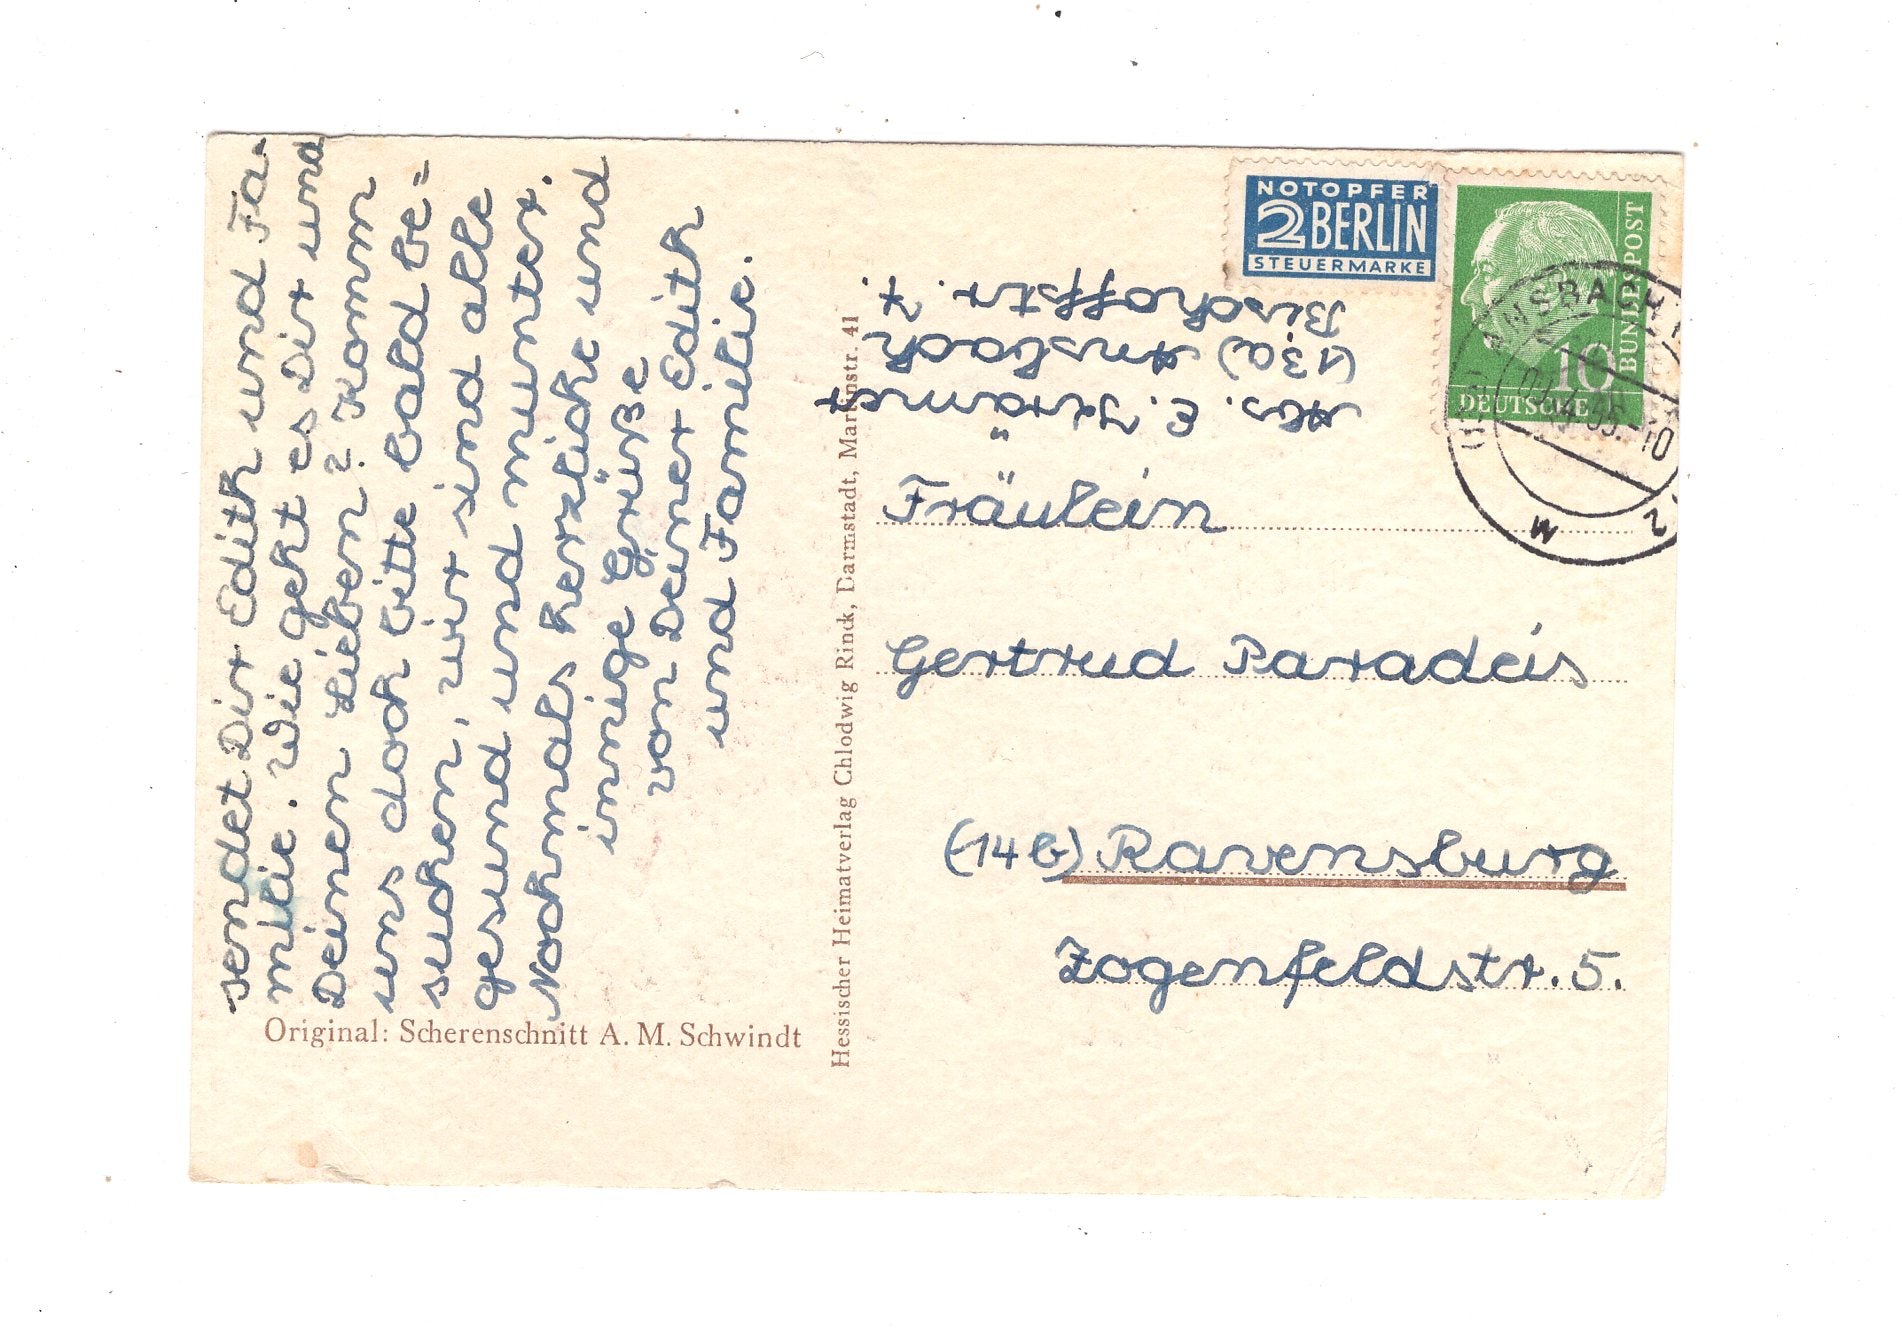 sendet Dir Edith und Fa-
milie. Wie geht es Dir und
Deinen Lieben? Komm
uns doch bitte bald be=
suchen, wir sind alle
gesund und munter.
Nochmals herzliche und
innige Grüße
von Deiner Edith
und Familie.
Original: Scherenschnitt A. M. Schwindt
Hessischer Heimatverlag Chlodwig Rinck, Darmstadt, Martinstr. 41
NOTOPFER
2 BERLIN
STEUERMARKE
DEUTSCHE
BUNDESPOST
10
ANSBACH
Abs. E.
(13a) Ansbach
Bischoffstr. 7.
Fräulein
Gertrud Paradeis
(14b) Ravensburg
Zogenfeldstr. 5.